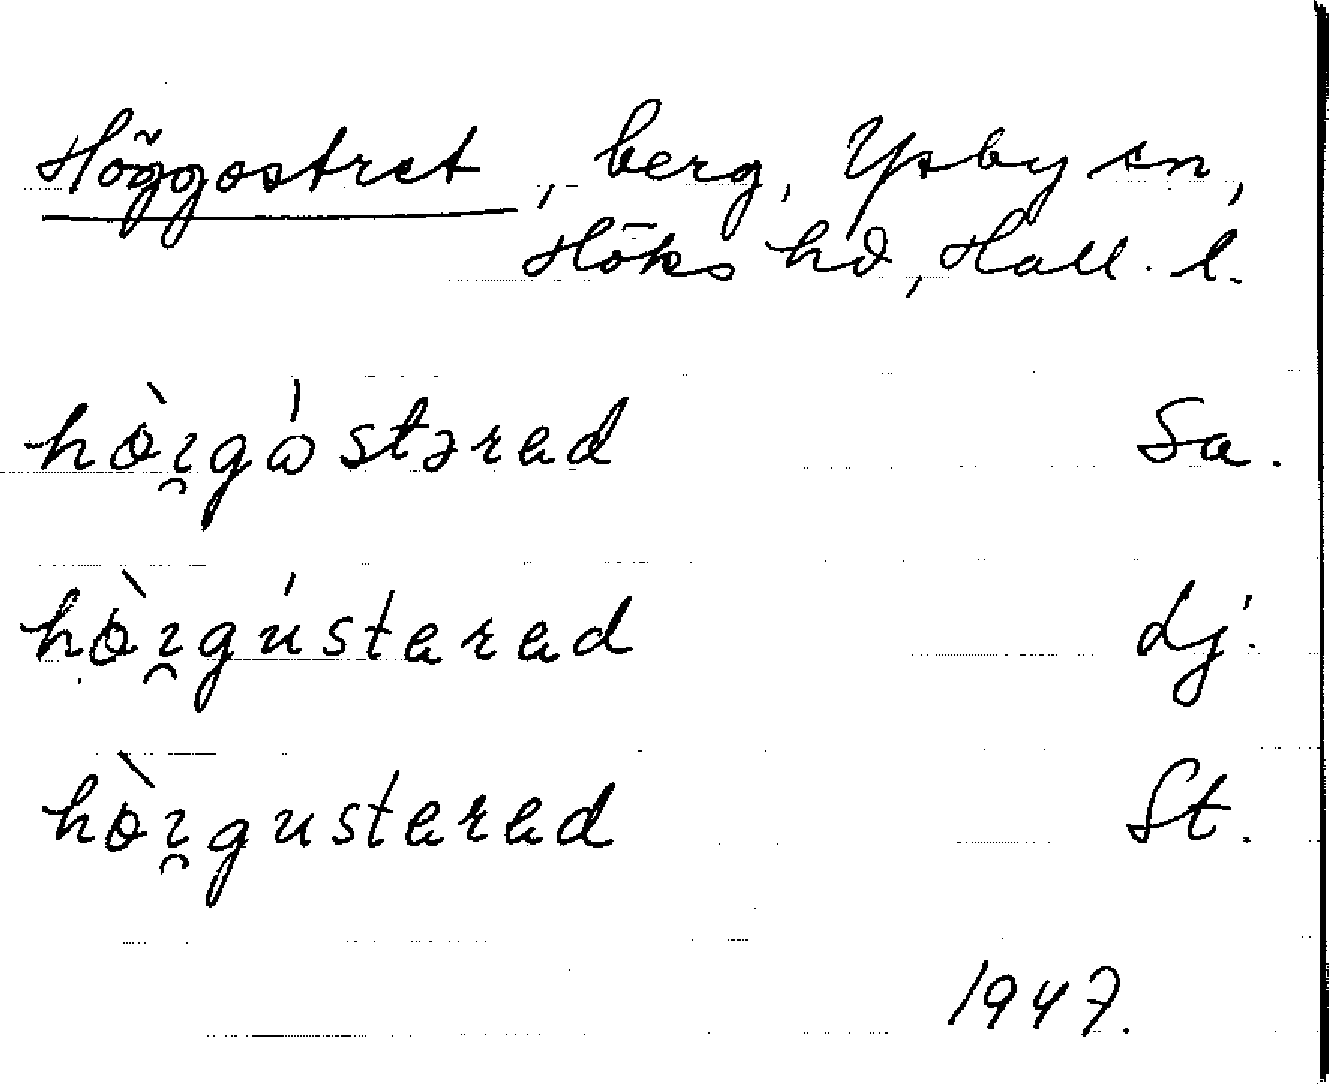 Höggostret, berg, Ysby sn,
Höks hd, Hall. l.
hòi̯gɷ́stərəd Sa.
hòi̯gústərəd Lj.
hòi̯gustərəd St.
1947.